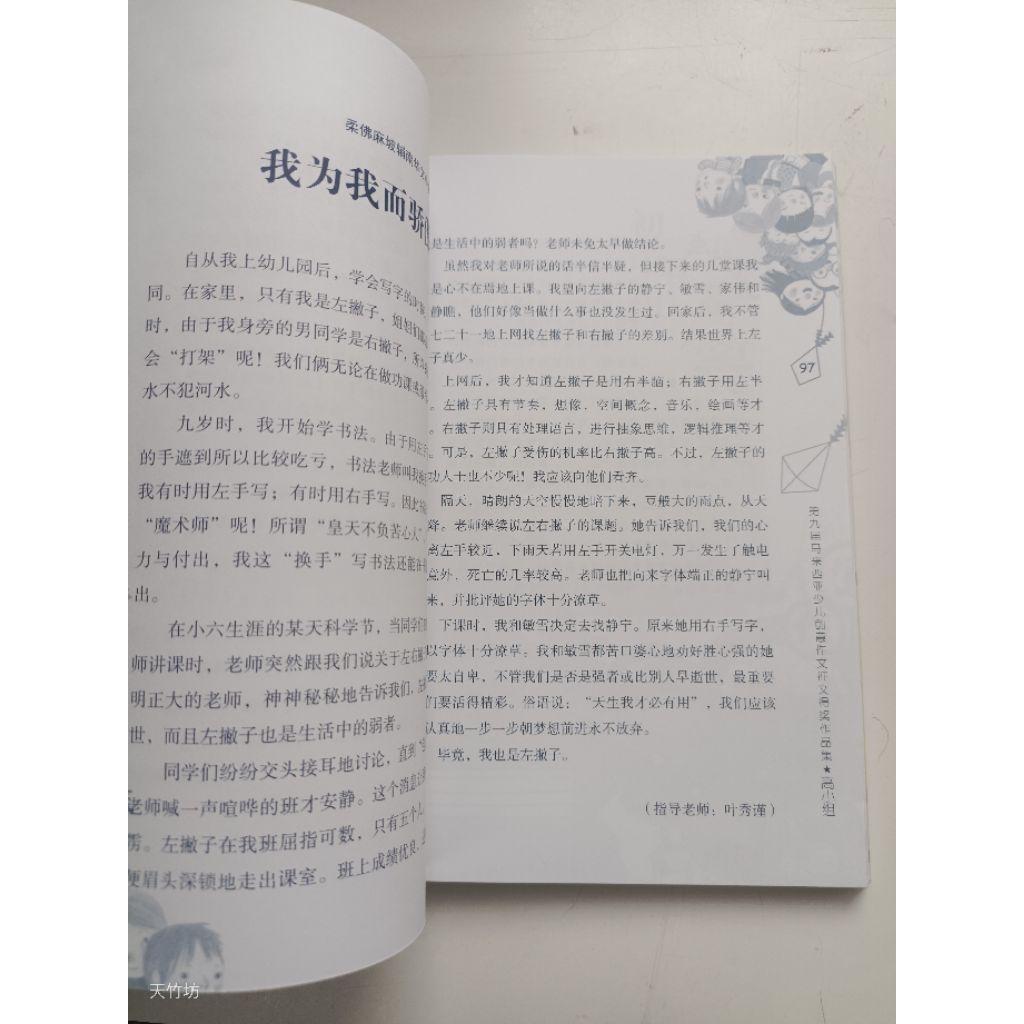 柔佛麻坡辅南华文
我为我而骄
自从我上幼儿园后，学会写字的
同。在家里，只有我是左撇子，姐姐
时，由于我身旁的男同学是右撇子，所
会“打架”呢！我们俩无论在做功课
水不犯河水。
九岁时，我开始学书法。由于用左
的手遮到所以比较吃亏，书法老师叫我
我有时用左手写；有时用右手写。因此
“魔术师”呢！所谓“皇天不负苦心人”
力与付出，我这“换手”写书法还能
出。
在小六生涯的某天科学节，当同学们
师讲课时，老师突然跟我们说关于左右
明正大的老师，神神秘秘地告诉我们，左
世，而且左撇子也是生活中的弱者。
同学们纷纷交头接耳地讨论，直到
老师喊一声喧哗的班才安静。这个消息
雳。左撇子在我班屈指可数，只有五个人
便眉头深锁地走出课室。班上成绩优良，
是生活中的弱者吗？老师未免太早做结论。
虽然我对老师所说的话半信半疑，但接下来的几堂课我
是心不在焉地上课。我望向左撇子的静宁、敏雪、家伟和
静瞧，他们好像当做什么事也没发生过。回家后，我不管
七二十一地上网找左撇子和右撇子的差别。结果世界上左
子真少。
上网后，我才知道左撇子是用右半脑；右撇子用左半
。左撇子具有节奏，想像，空间概念，音乐，绘画等才
。右撇子则具有处理语言，进行抽象思维，逻辑推理等才
。可是，左撇子受伤的机率比右撇子高。不过，左撇子的
功人士也不少呢！我应该向他们看齐。
隔天，晴朗的天空慢慢地暗下来，豆般大的雨点，从天
降。老师继续说左右撇子的课题。她告诉我们，我们的心
离左手较近，下雨天若用左手开关电灯，万一发生了触电
意外，死亡的几率较高。老师也把向来字体端正的静宁叫
来，并批评她的字体十分潦草。
下课时，我和敏雪决定去找静宁。原来她用右手写字，
以字体十分潦草。我和敏雪都苦口婆心地劝好胜心强的她
要太自卑，不管我们是否是强者或比别人早逝世，最重要
们要活得精彩。俗语说：“天生我才必有用”，我们应该
认真地一步一步朝梦想前进永不放弃。
毕竟，我也是左撇子。
（指导老师：叶秀谨）
97
第九届马来西亚少儿创意作文征文得奖作品集★高小组
天竹坊